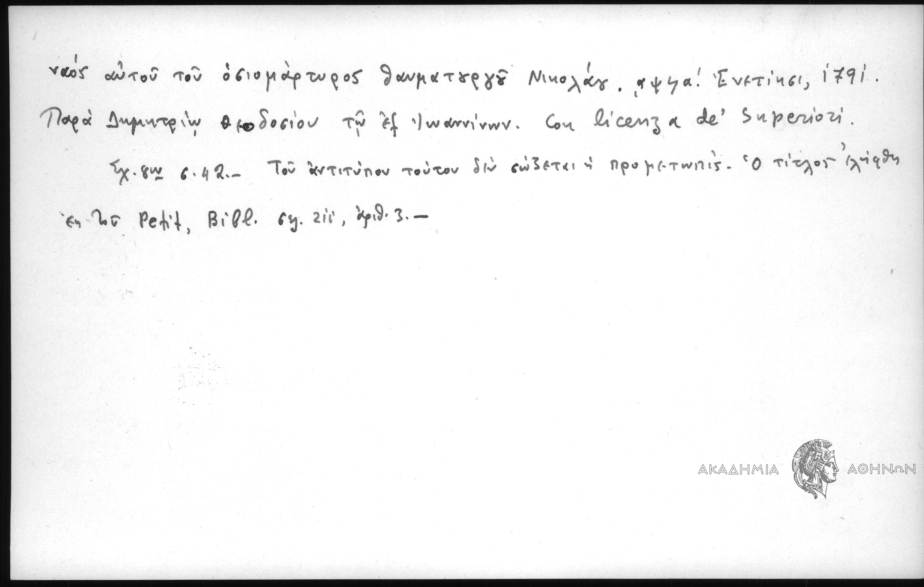 ναός αὐτοῦ τοῦ ὁσιομάρτυρος θαυματȣργȣ͂ Νικολάȣ. ͵αψϟα! Ἐνετίησι, 1791.
Παρὰ Δημητρίῳ Θεοδοσίου τῷ ἐξ Ἰωαννίνων. Con licenza de' Superiori.
Σχ. 8ον σ. 42.— Τοῦ ἀντιτύπου τούτου δὲν σώζεται ἡ προμετωπίς. Ὁ τίτλος ἐλήφθη
ἐκ τῆς Petit, Bibl. ση. ΖΙΙ, ἀριθ. 3.—
ΑΚΑΔΗΜΙΑ ΑΘΗΝΩΝ